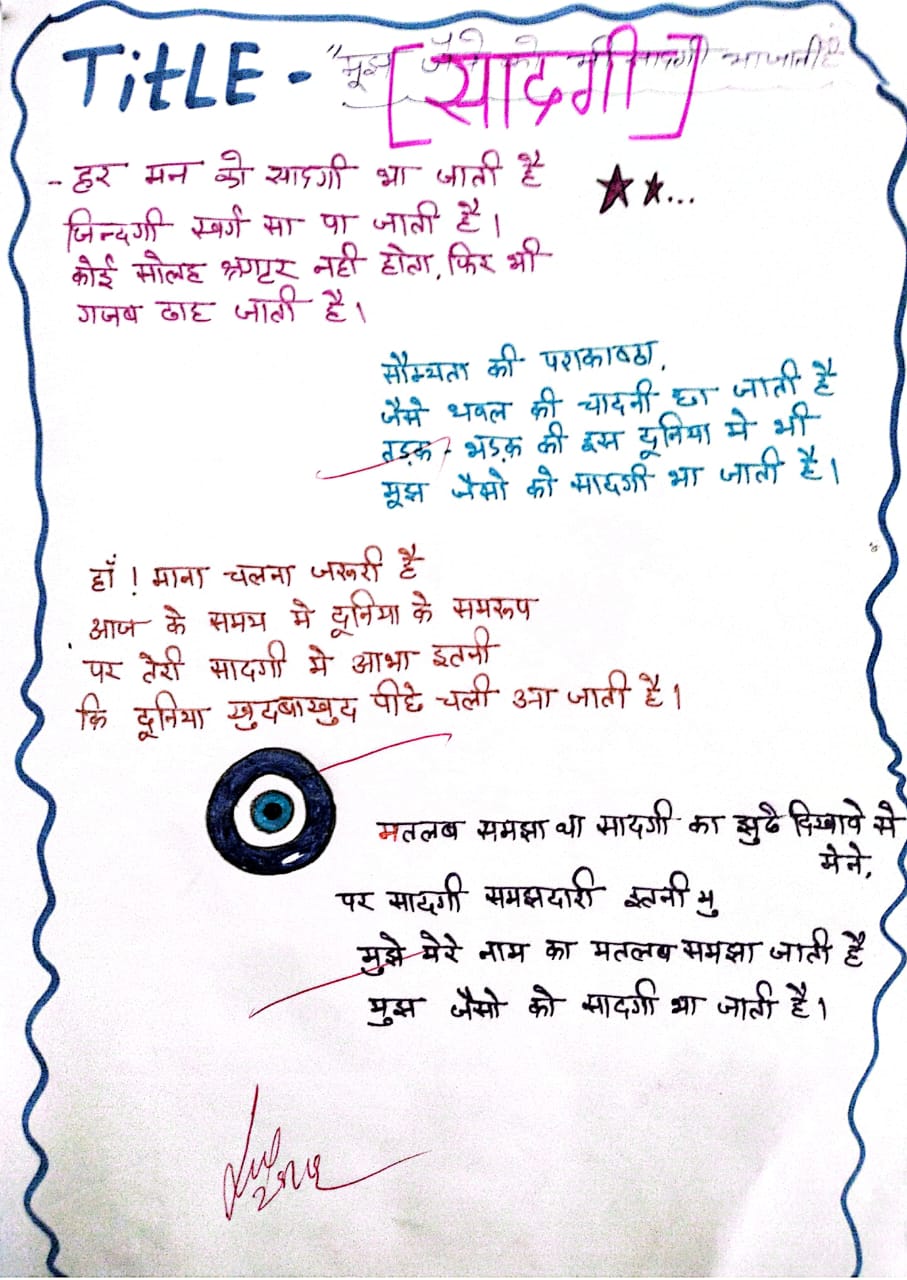 TitLE - [सादगी]
"मुझ जैसे को भी सादगी भा जाती है
- हर मन को सादगी भा जाती है
जिन्दगी स्वर्ग सा पा जाती है।
कोई सोलह श्रृगांर नही होता, फिर भी
गजब ढाह जाती है।
सौम्यता की पराकाष्ठा,
जैसे धवल की चादनी छा जाती है
तड़क - भड़क की इस दूनिया मे भी
मुझ जैसो को सादगी भा जाती है।
हाँ ! माना चलना जरूरी है
आज के समय मे दूनिया के समरूप
पर तेरी सादगी मे आभा इतनी
कि दूनिया खुदबाखुद पीछे चली आ जाती है।
मतलब समझा था सादगी का झुठे दिखावे से
मेने,
पर सादगी समझदारी इतनी मु
मुझे मेरे नाम का मतलब समझा जाती है
मुझ जैसो को सादगी भा जाती है।